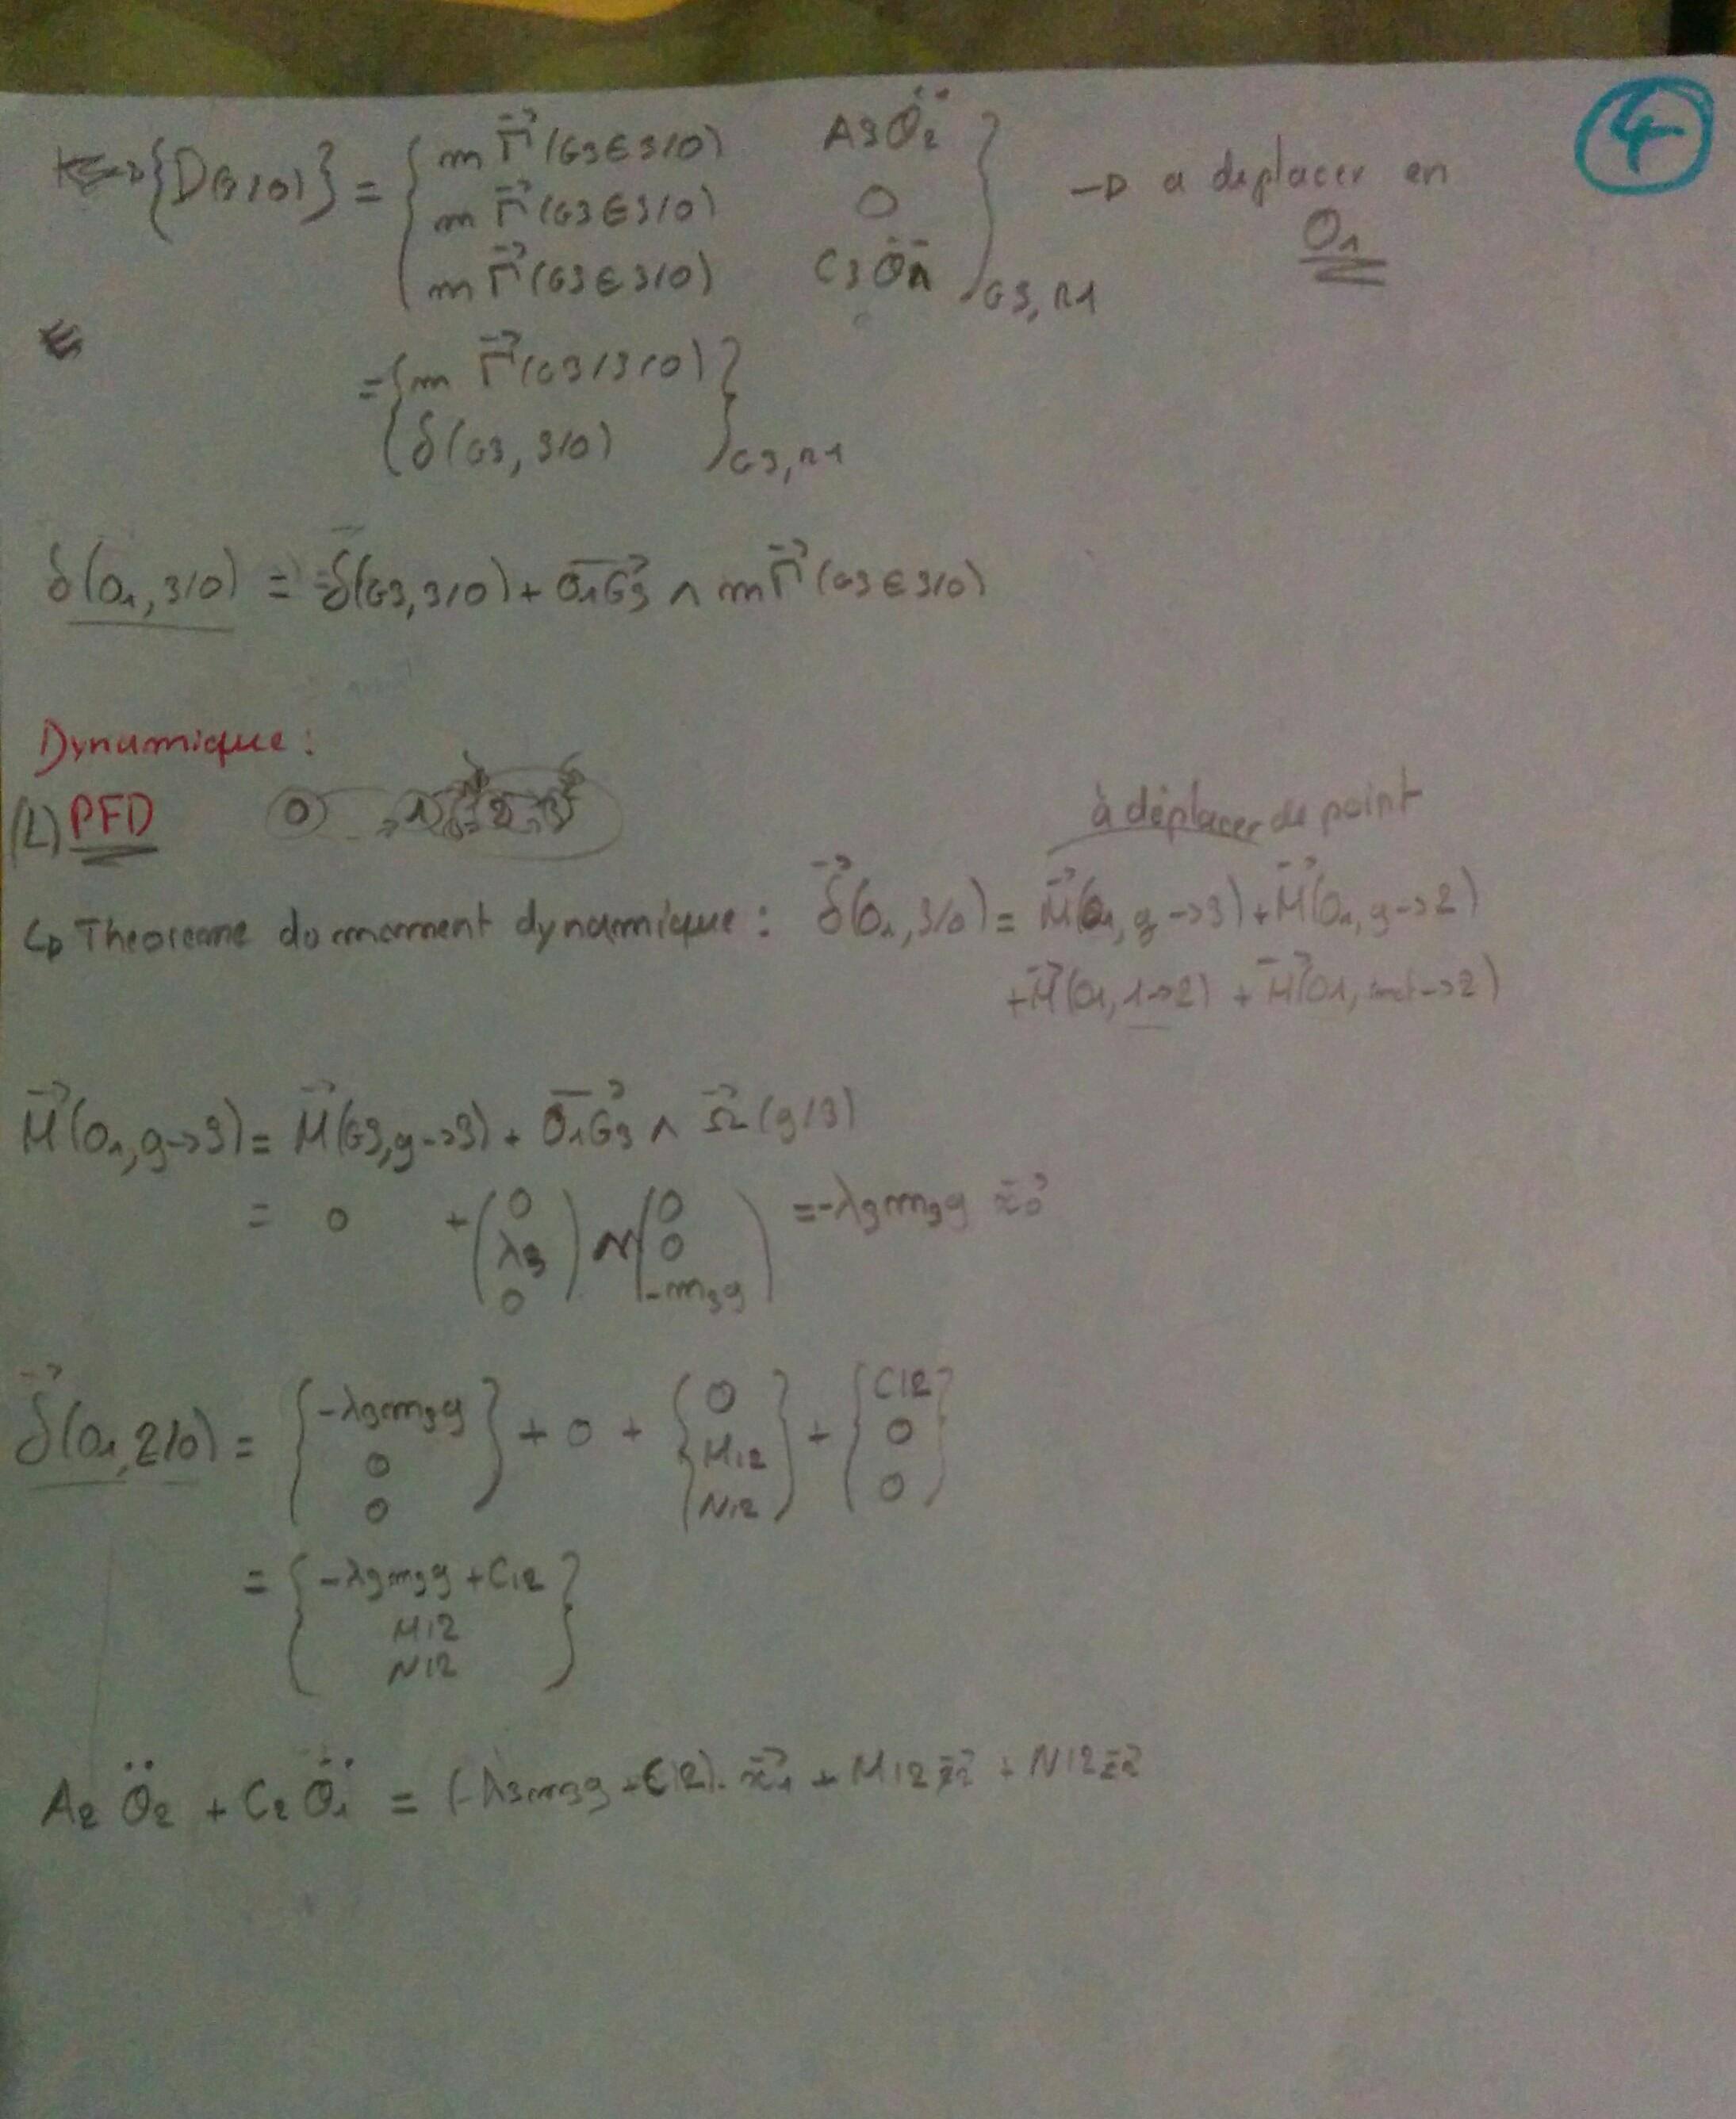 ④
{D(3/0)} = { m Γ⃗(G3∈3/0) A3 Ö2
m Γ⃗(G3∈3/0) 0
m Γ⃗(G3∈3/0) C3 Ö1 } G3,R1 → a deplacer en O1
= { m Γ⃗(G3/3/0)
δ(G3, 3/0) } G3,R1
δ(O1, 3/0) = δ(G3, 3/0) + O1G3 ∧ m Γ⃗(G3∈3/0)
Dynamique :
(2) PFD 0 1 2 3
à déplacer de point
↳ Theoreme du moment dynamique : δ⃗(O1, 3/0) = M⃗(O1, g→3) + M⃗(O1, g→2)
+ M⃗(O1, 1→2) + M⃗(O1, mot→2)
M⃗(O1, g→3) = M⃗(G3, g→3) + O1G3 ∧ Ω⃗(g/3)
= 0 + (0 λ3 0) ∧ (0 0 -m3g) = -λ3m3g x⃗0
δ⃗(O1, 2/0) = { -λ3m3g 0 0 } + 0 + { 0 M12 N12 } + { C12 0 0 }
= { -λ3m3g + C12
M12
N12 }
A2 Ö2 + C2 Ö1 = (-λ3m3g + C12). x⃗1 + M12 + N12 z⃗2